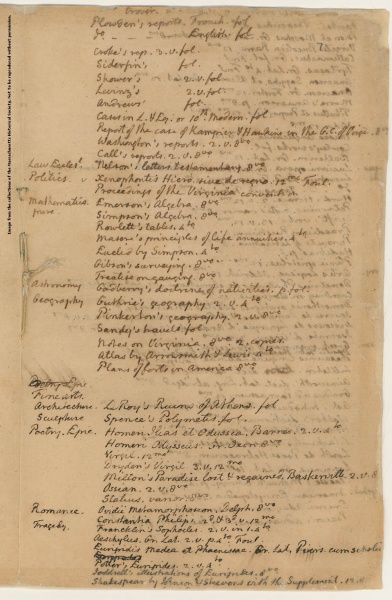 Image from the collections of the Massachusetts Historical Society. Not to be reproduced without permission.
Plowden's reports. French. fol.
do _ _ _ English. fol.
Croke's reps. 3.v. fol.
Siderfin's fol.
Shower's 2.v. fol
Levinz's 2.v. fol.
Andrews' fol.
Cases in L. & Eq. or 10th Modern. fol.
Report of the case of Kamper v Hawkins in the G.C. of Virge. 8vo
Washington's reports. 2.v. 8vo
Call's reports. 2.v. 8vo
Law Eccles'l. Nelson's letters testamentary. 8vo
Politics. Xenophontis Hiero. sive de regno. Foul.
Proceedings of the Virginia convention
Mathematics. Emerson's Algebra. 8vo
pure Simpson's Algebra. 8vo
Rowlett's tables. 4to
Maseres's principles of life annuities. 4to
Euclid by Simpson. 4to
Gibson's surveying. 8vo
Treatise on gauging. 8vo
Astronomy Gadbury's doctrine of nativities. p. fol.
Geography Guthrie's geography 2.v. 4to
Pinkerton's geography. 2.v. 8vo
Sandys's travels fol.
Notes on Virginia. 8vo 2. copies.
Atlas by Arrowsmith & Lewis 4to
Plans of forts in America 8vo
Fine arts.
Architecture. Le Roy's Ruins of Athens. fol
Sculpture Spence's Polymetis. fol.
Poetry. Epic. Homeri Ilias et Odyssea. Barnes. 2.v. 4to
Homeri Odyssea. Gr. 8vo
Virgil. 12mo
Dryden's Virgil 3.v. 12mo
Milton's Paradise lost & regained. Baskerville 2.v. 8
Ossian. 2.v. 8vo
Statius. varior. 8vo
Romance. Ovidii Metamorphoseon. Delph. 8vo
Constantia Philips. 2d. & 3d. v. 12mo
Tragedy. Francklin's Sophocles 2.v. in 1. 4to
Aeschylus. Gr. Lat. 2.v. p. 4to Foul.
Euripidis Medea et Phoenissae. Gr. Lat. Piers. cum scholiis
Potter's Euripides. 2.v. 4to
illustrations of Euripides. 8vo
Shakespear by & Steevens with the Supplement. 12.v